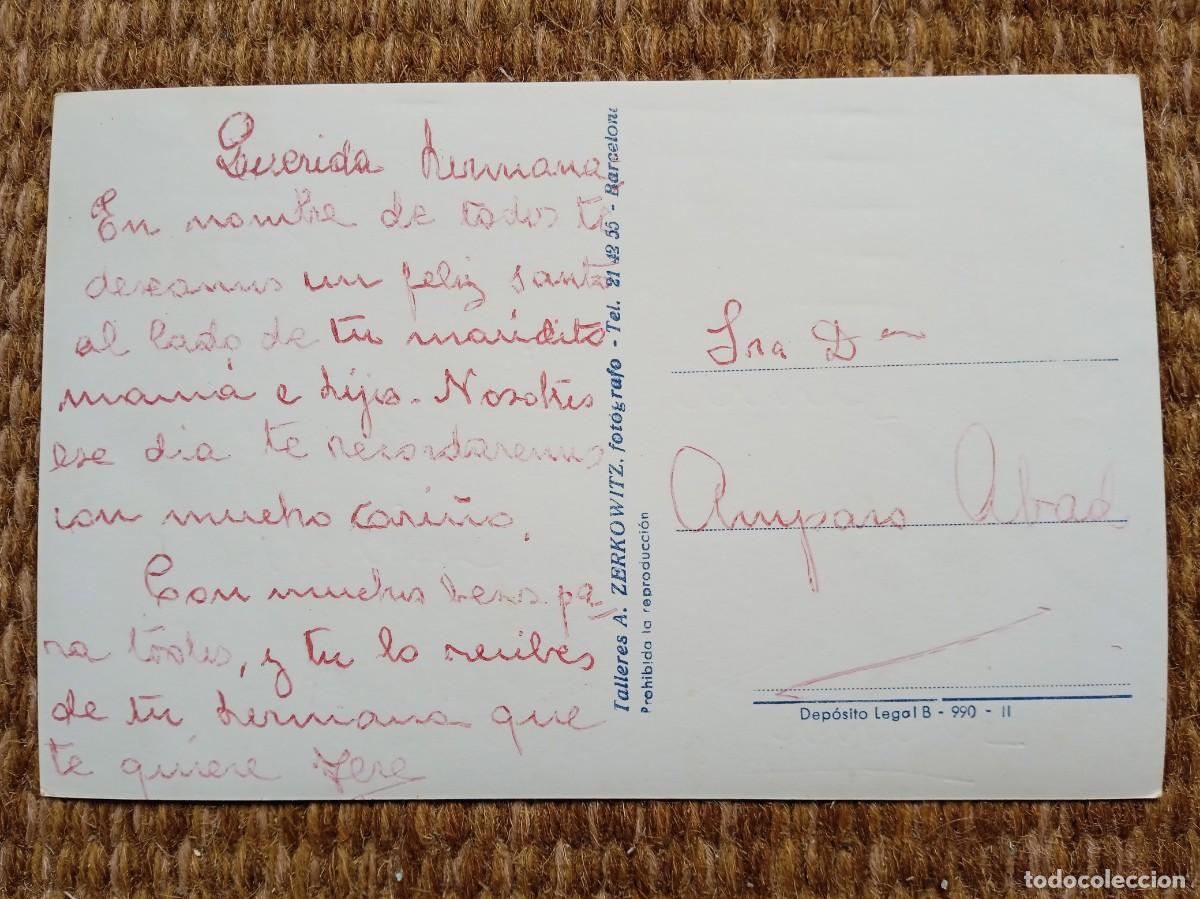 Querida hermana,
En nombre de todos te
deseamos un feliz santo
al lado de tu maridito
mamá e hijos. Nosotros
ese dia te recordaremos
con mucho cariño.
Con muchos besos pa-
ra todos, y tu lo recibes
de tu hermana que
te quiere Tere
Talleres A. ZERKOWITZ, fotógrafo - Tel. 21 42 55 - Barcelona
Prohibida la reproducción
Sra Dª
Amparo Abad
Depósito Legal B - 990 - II
todocoleccion